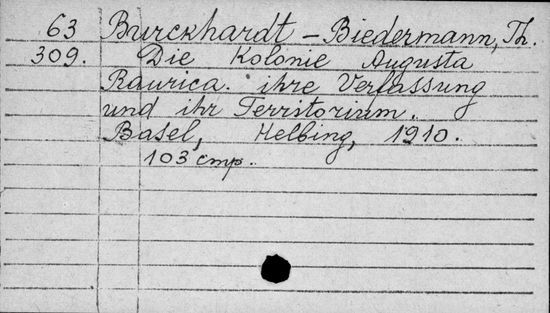 63 Burckhardt - Biedermann, Th.
309. Die Kolonie Augusta
Raurica. ihre Verfassung
und ihr Territorium.
Basel, Helbing, 1910.
103 стр.